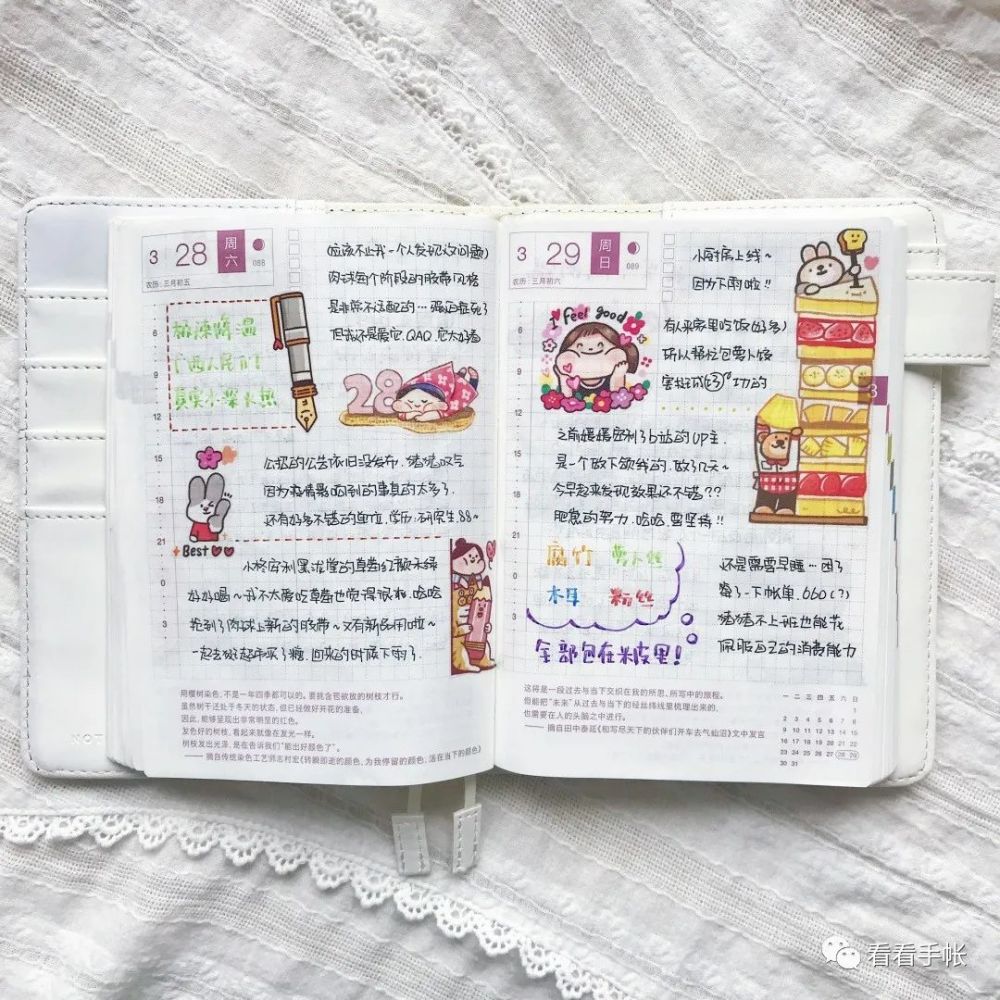 3 28 周六 088
农历:三月初五
(应该不止我一个人发现这问题)
肉球每个阶段的胶带风格
是非常不适配的…强迫症死了
但我还是爱它.QAQ.它太好看
广西人民们!
28
公招的公告依旧没发布.猪猪叹气
因为疫情影响到的事真的太多了.
还有好多不错的单位.学历:研究生.88~
Best
好好喝~我不太爱吃草莓也觉得很和.哈哈
抢到了肉球上新的胶带~又有新的用啦~
一起去逛超市买了糖.回来的时候下雨了.
6
9
12
15
18
21
0
3
用樱树染色,不是一年四季都可以的。要挑含苞欲放的树枝才行。
虽然树干还处于冬天的状态,但已经做好开花的准备,
因此,能够呈现出非常明显的红色。
发色好的树枝,看起来就像在发光一样。
树枝发出光泽,是在告诉我们“能出好颜色了”。
——摘自传统染色工艺师志村宏《转瞬即逝的颜色,为我停留的颜色,活在当下的颜色》
3 29 周日 089
农历:三月初六
小厨房上线~
因为下雨啦!!
I feel good
有人来家里吃饭(好多)
所以帮忙包萝卜饭
之前媛媛安利了b站的up主.
是一个做下颌线的.做了几天~
今早起来发现效果还不错??
肥象的努力.哈哈.要坚持!!
腐竹 萝卜丝
木耳 粉丝
全部包在米皮里!
还是需要早睡…困了
算了一下帐单.660(?)
猪猪不上班也能花
佩服自己的消费能力
6
9
12
15
18
21
0
3
3
这将是一段过去与当下交织在我的所思、所写中的旅程。
但能把“未来”从过去与当下的经丝纬线里梳理出来的,
也需要在人的头脑之中进行。
——摘自田中泰延《和写尽天下的伙伴们开车去气仙沼》文中发言
一 二 三 四 五 六 日
1
2 3 4 5 6 7 8
9 10 11 12 13 14 15
16 17 18 19 20 21 22
23 24 25 26 27 28 29
30 31
NOT
看看手帐